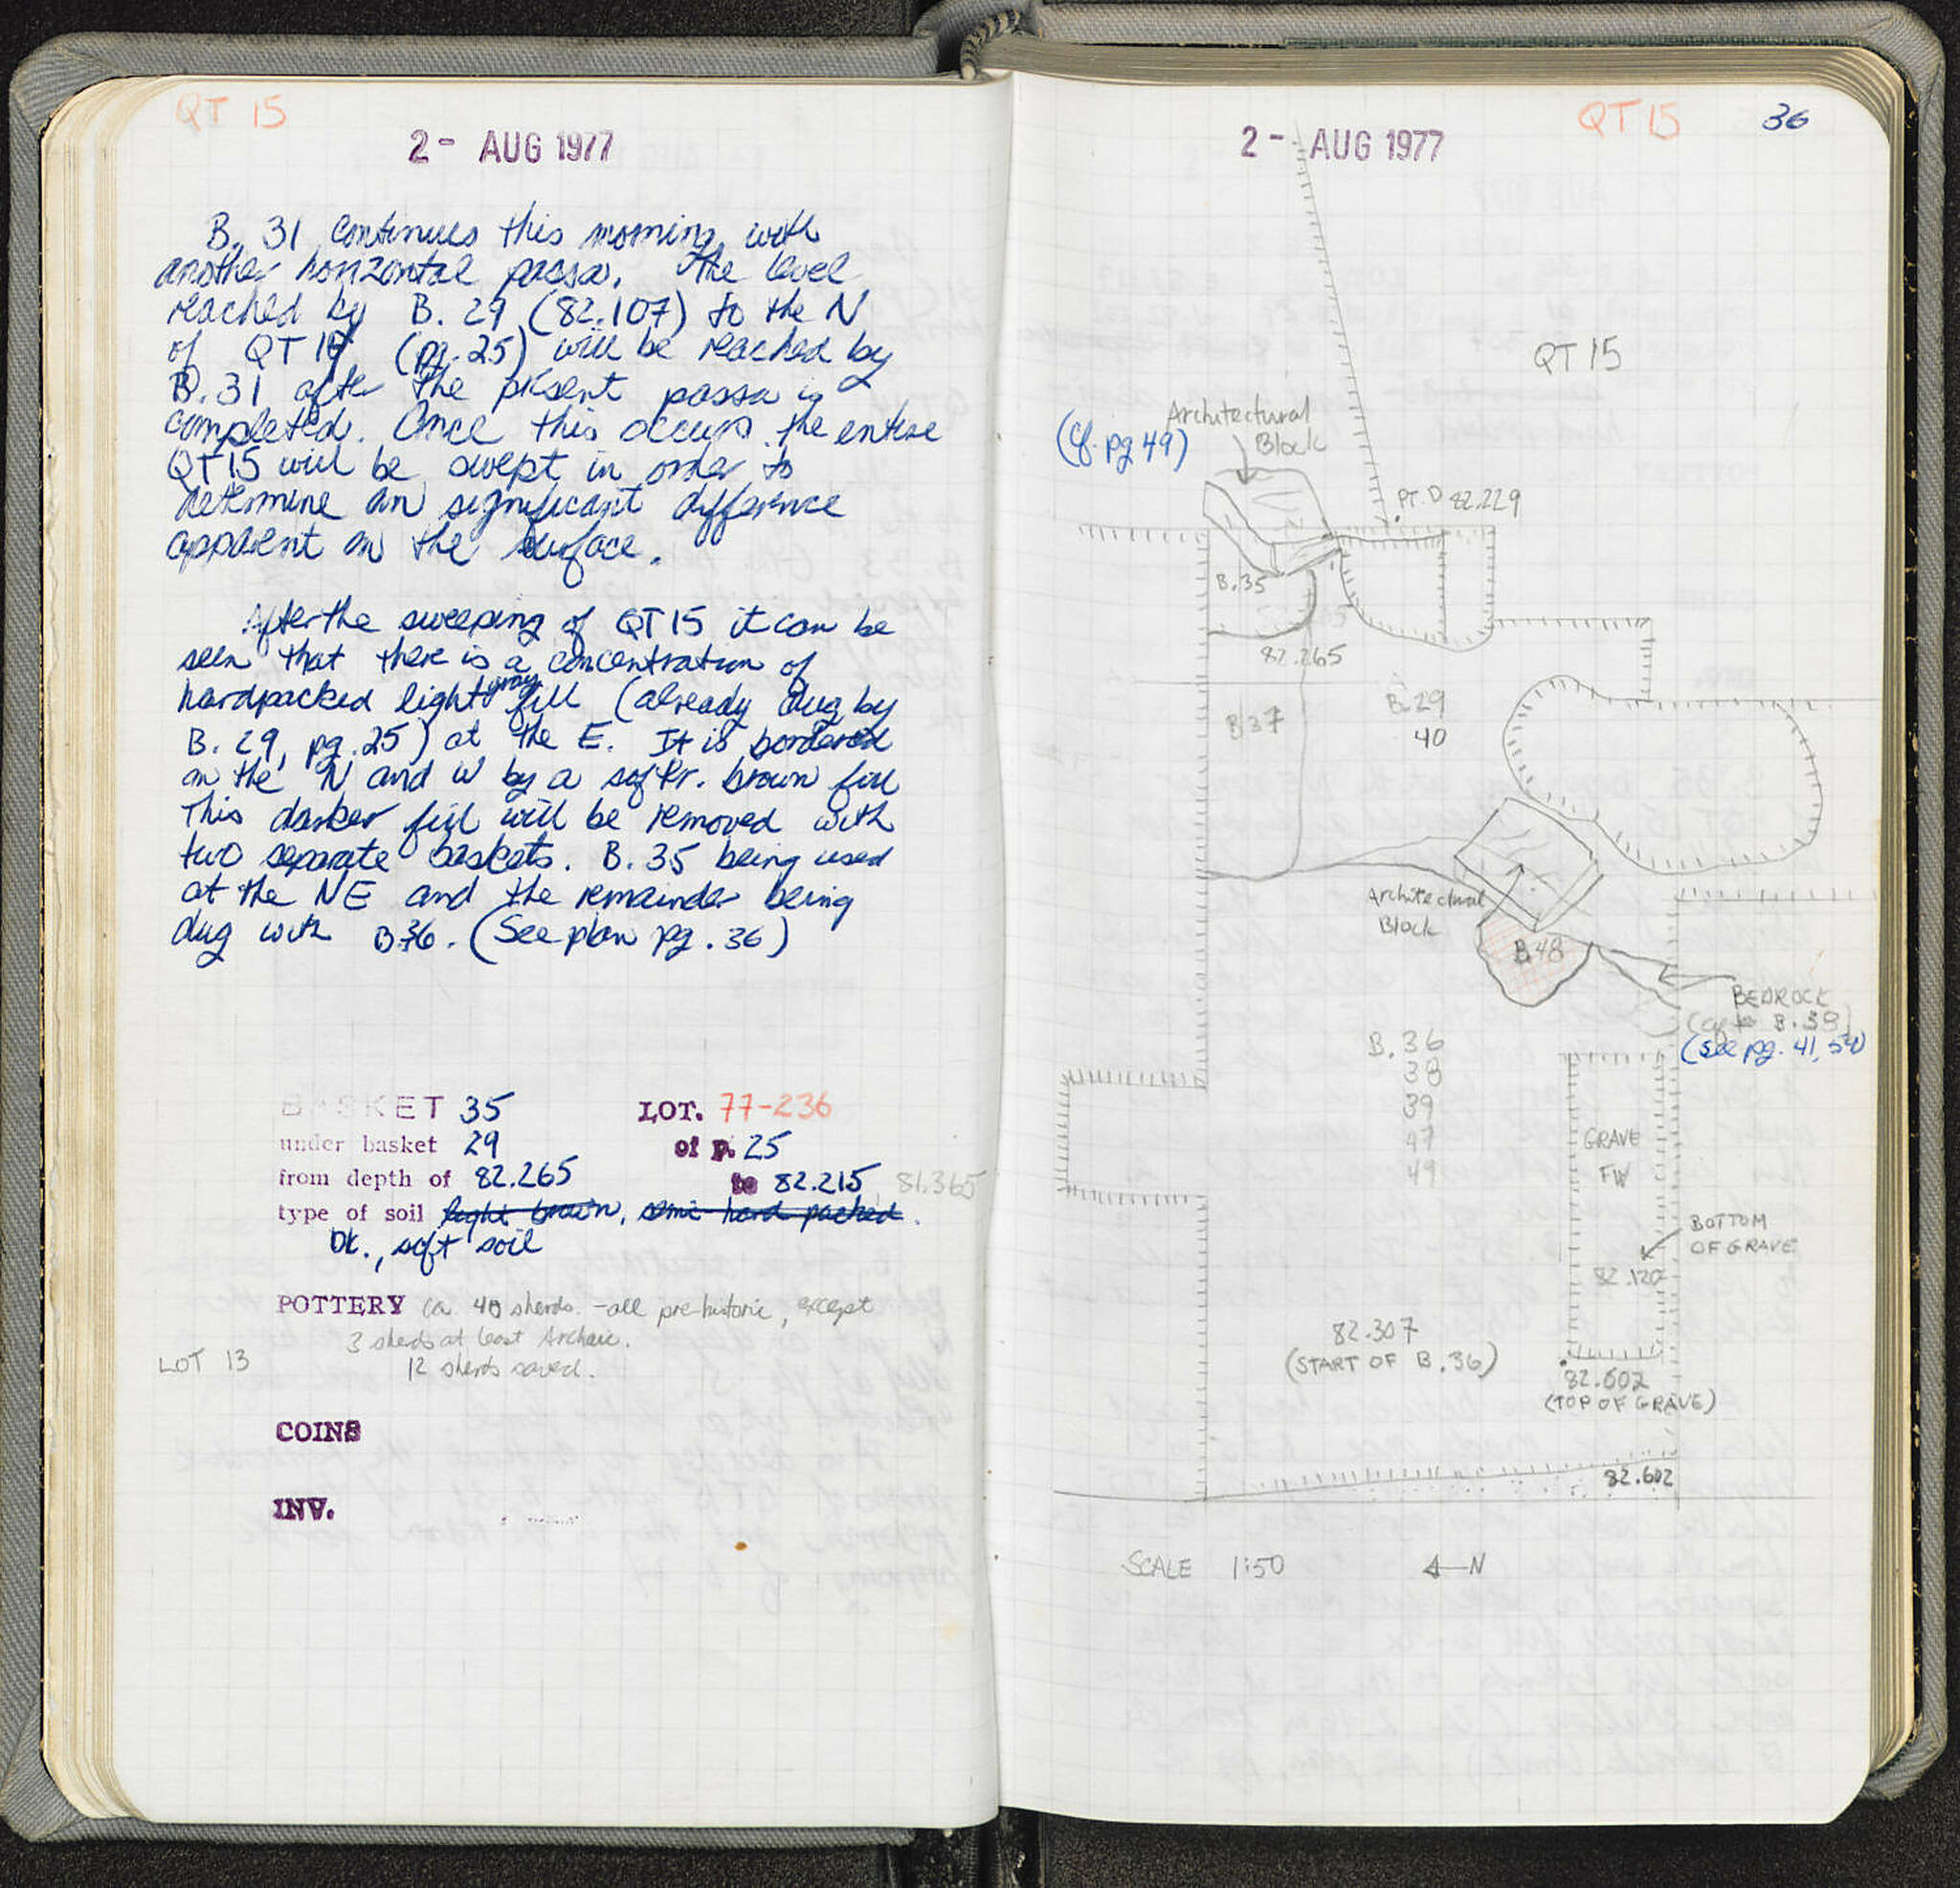 QT 15
2 - AUG 1977
B. 31 continues this morning with
another horizontal passa. The level
reached by B. 29 (82.107) to the N
of QT (pg. 25) will be reached by
B. 31 after the present passa is
completed. Once this occurs the entire
QT15 will be swept in order to
determine an significant difference
apparent on the surface.
After the sweeping of QT15 it can be
seen that there is a concentration of
hardpacked light gray fill (already dug by
B. 29, pg. 25) at the E. It is bordered
on the N and W by a softr. brown fill
This darker fill will be removed with
two separate baskets. B. 35 being used
at the NE and the remainder being
dug with B36. (See plan pg. 36)
BASKET 35 LOT. 77-236
under basket 29 of p. 25
from depth of 82.265 to 82.215, 81.365
type of soil light brown, semi hard packed.
Dk., soft soil
POTTERY ca. 40 sherds. - all pre-historic, except
3 sherds at least Archaic.
LOT 13 12 sherds saved.
COINS
INV.
QT 15 36
2 - AUG 1977
QT 15
Architectural
Block
(Cf. pg 49)
PT. D 82.229
B.35
82.265
B37
B.29
40
Architectural
Block
B.48
BEDROCK
B. 38)
(see pg. 41, 54)
B. 36
38
39
47
49
GRAVE
FW
BOTTOM
OF GRAVE
82.120
82.307
(START OF B.36)
82.602
(TOP OF GRAVE)
82.602
SCALE 1:50 N